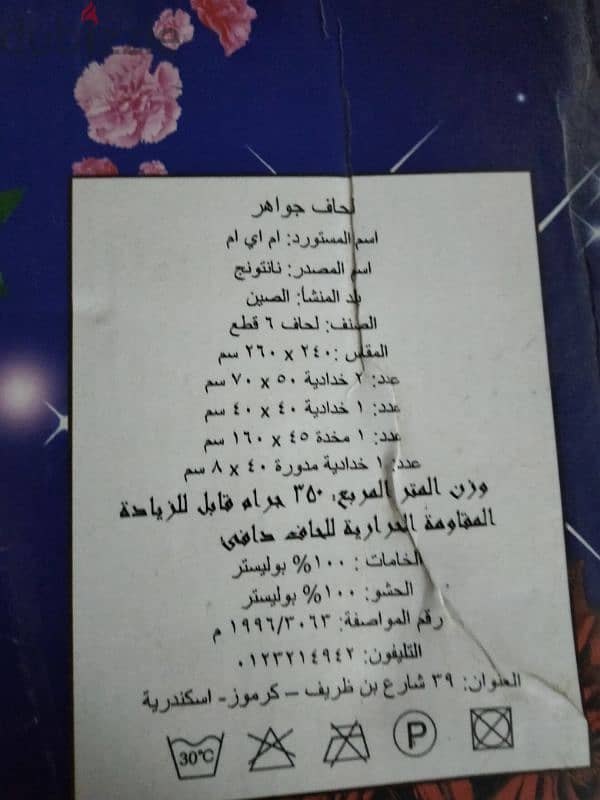 لحاف جواهر
اسم المستورد: ام اي ام
اسم المصدر: نانتونج
بلد المنشأ: الصين
الصنف: لحاف ٦ قطع
المقاس: ٢٤٠ x ٢٦٠ سم
عدد: ٢ خدادية ٥٠ x ٧٠ سم
عدد: ١ خدادية ٤٠ x ٤٠ سم
عدد: ١ مخدة ٤٥ x ١٦٠ سم
عدد: ١ خدادية مدورة ٤٠ x ٨ سم
وزن المتر المربع: ٣٥٠ جرام قابل للزيادة
المقاومة الحرارية للحاف دافئ
الخامات: ١٠٠% بوليستر
الحشو: ١٠٠% بوليستر
رقم المواصفة: ١٩٩٦/٣٠٦٣ م
التليفون: ٠١٢٣٢١٤٩٤٢
العنوان: ٣٩ شارع بن ظريف – كرموز- اسكندرية
30°C P